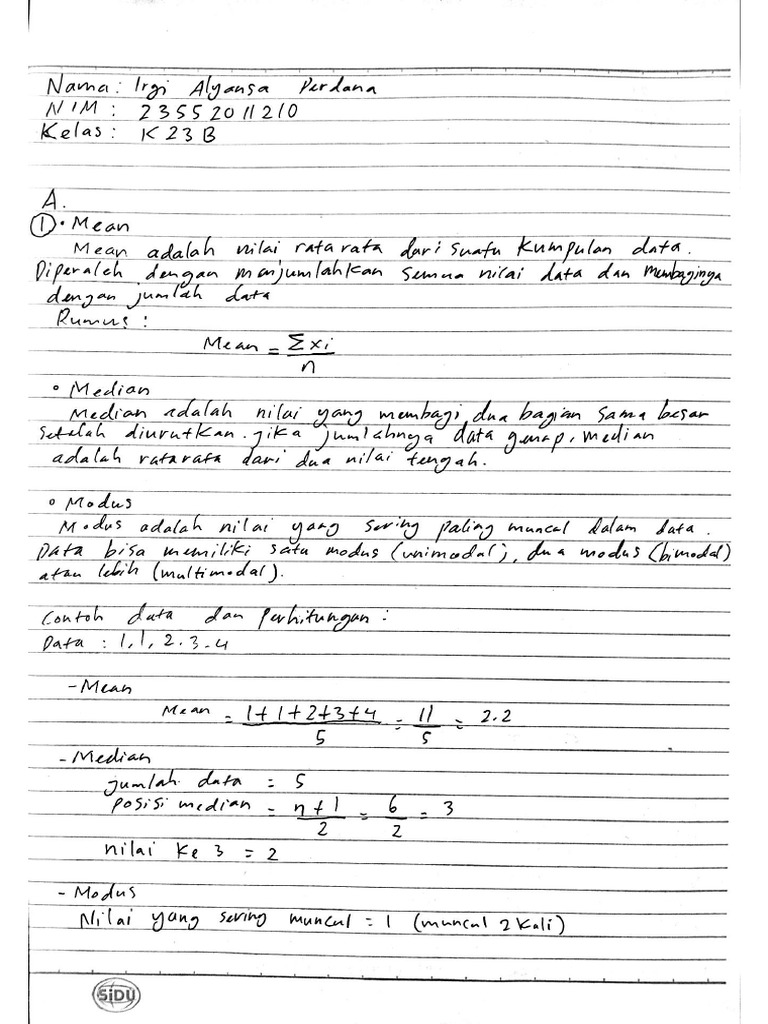 Nama : Irgi Alyansa Perdana
NIM : 23552011210
Kelas : K23B
A.
① • Mean
Mean adalah nilai rata rata dari suatu kumpulan data.
Diperoleh dengan menjumlahkan semua nilai data dan membaginya
dengan jumlah data
Rumus :
Mean = Σxi / n
• Median
Median adalah nilai yang membagi dua bagian sama besar
setelah diurutkan. jika jumlahnya data genap, median
adalah rata rata dari dua nilai tengah.
• Modus
Modus adalah nilai yang sering paling muncul dalam data.
Data bisa memiliki satu modus (unimodal), dua modus (bimodal)
atau lebih (multimodal).
Contoh data dan perhitungan :
Data : 1, 1, 2. 3. 4
- Mean
Mean = 1+1+2+3+4 / 5 = 11 / 5 = 2.2
- Median
jumlah data = 5
posisi median = n+1 / 2 = 6 / 2 = 3
nilai ke 3 = 2
- Modus
Nilai yang sering muncul = 1 (muncul 2 kali)
SiDU